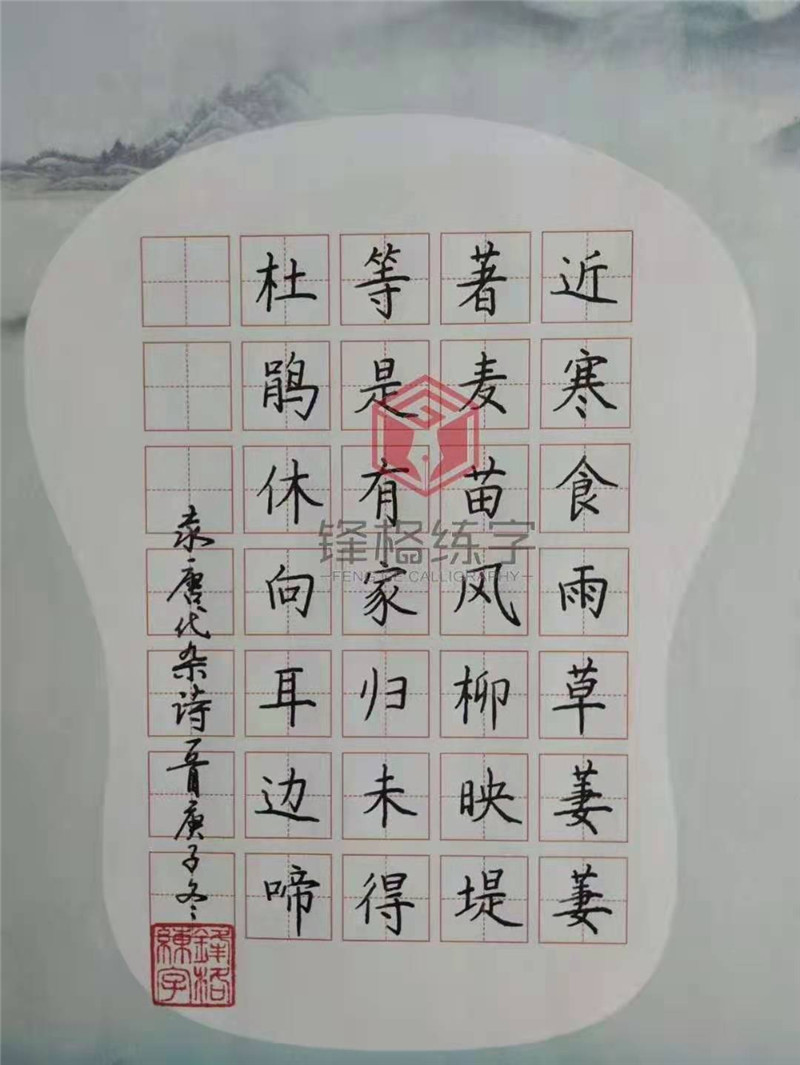 近寒食雨草萋萋
著麦苗风柳映堤
等是有家归未得
杜鹃休向耳边啼
录唐代杂诗一首庚子冬
锋格練字
锋格练字
FENG GE CALLIGRAPHY